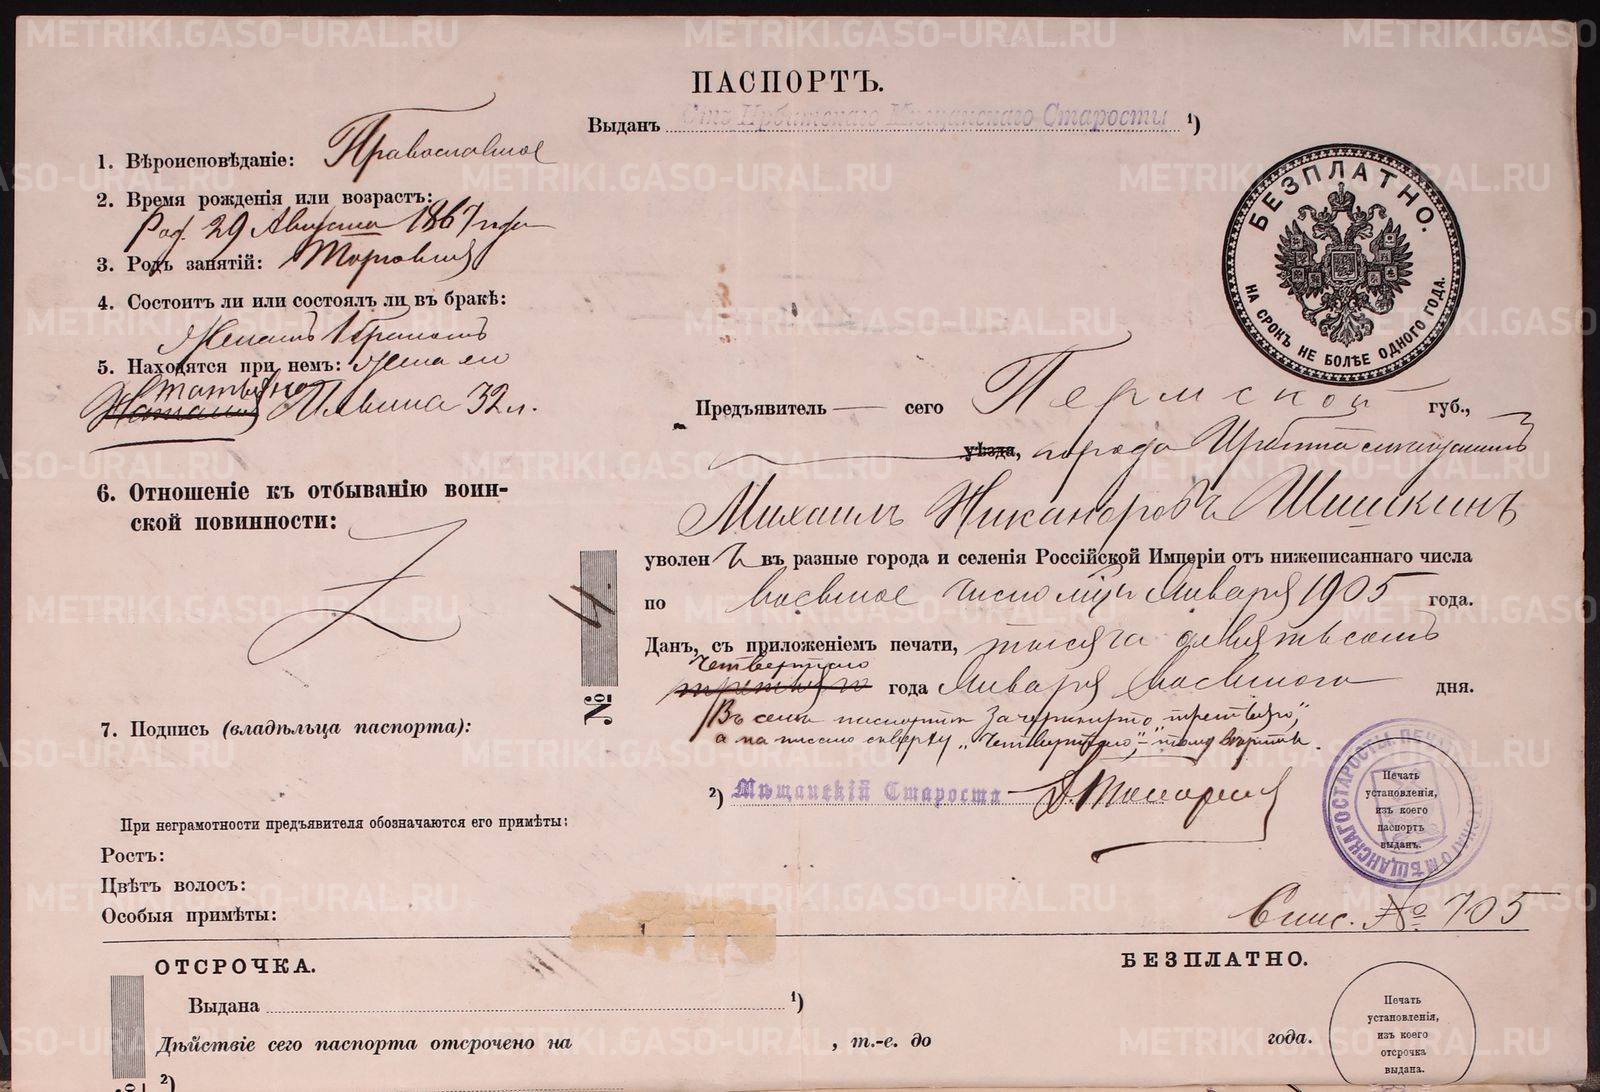 ПАСПОРТЪ.
Выданъ Отъ Ирбитскаго Мѣщанскаго Старосты ¹)
1. Вѣроисповѣданіе: Православное
2. Время рожденія или возрастъ:
29 Августа 1867 года
3. Родъ занятій: Торговля
4. Состоитъ ли или состоялъ ли въ бракѣ:
Женатъ
5. Находятся при немъ: жена его
Татьяна
Наталья Ильина 32 л.
6. Отношеніе къ отбыванію воин-
ской повинности:
7. Подпись (владѣльца паспорта):
При неграмотности предъявителя обозначаются его примѣты:
Ростъ:
Цвѣтъ волосъ:
Особыя примѣты:
БЕЗПЛАТНО.
НА СРОКЪ НЕ БОЛѢЕ ОДНОГО ГОДА.
Предъявитель — сего Пермской губ.,
уѣзда, города Ирбита
Михаилъ Никаноровъ Шишкинъ
уволенъ въ разные города и селенія Россійской Имперіи отъ нижеписаннаго числа
по восьмое число Января 1905 года.
Данъ, съ приложеніемъ печати, тысяча девятьсотъ
четвертаго
третьяго года Января восьмого дня.
Въ семъ паспортѣ зачеркнуто „третьяго“,
а написано сверху „четвертаго“, – тому вѣрить.
²) Мѣщанскій Староста
№ 4.
Печать
установленія,
изъ коего
паспортъ
выданъ.
Спис. № 705
ОТСРОЧКА.
БЕЗПЛАТНО.
Выдана ¹)
Дѣйствіе сего паспорта отсрочено на , т.-е. до года.
²)
Печать
установленія,
изъ коего
отсрочка
выдана.
METRIKI.GASO-URAL.RU